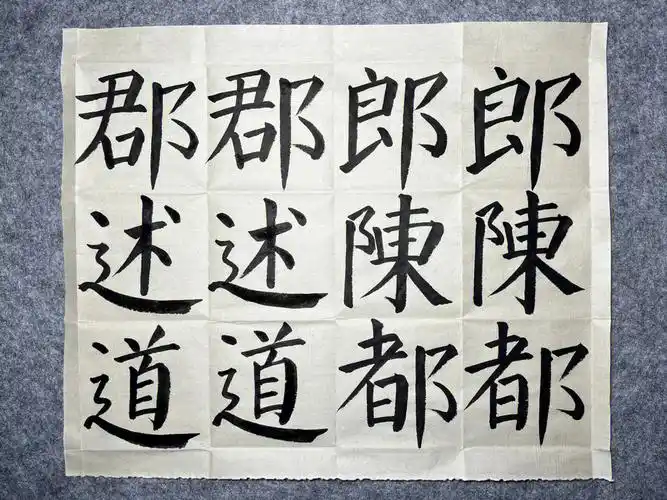 郎陳都
郎陳都
郡述道
郡述道